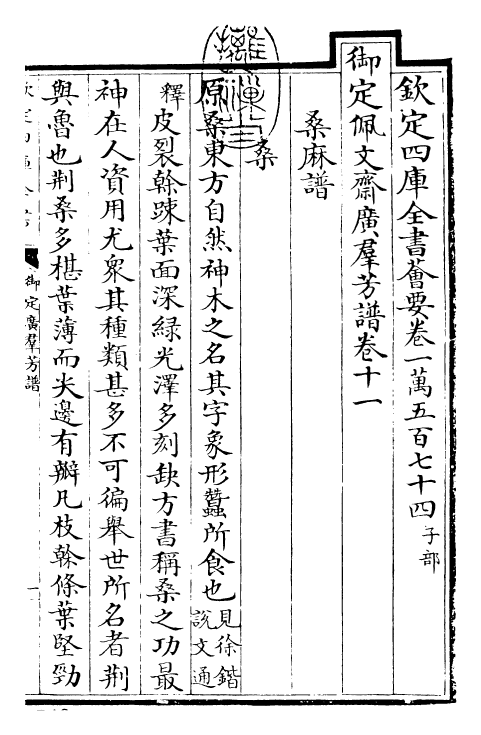 欽定四庫全書薈要卷一萬五百七十四子部
御定佩文齋廣羣芳譜卷十一
桑麻譜
桑
原桑東方自然神木之名其字象形蠶所食也見徐鍇說文通
釋皮裂榦踈葉面深緑光澤多刻缺方書稱桑之功最
神在人資用尤衆其種類甚多不可徧舉世所名者荆
與魯也荆桑多椹葉薄而尖邊有瓣凡枝榦條葉堅勁
欽定四庫全書
御定廣羣芳譜
一